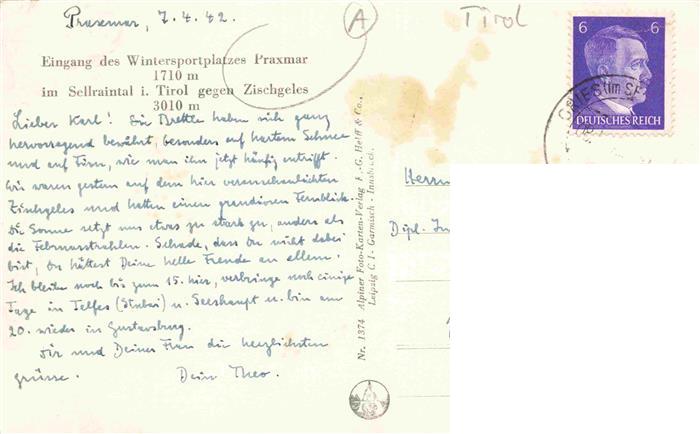 Praxmar, 7.4.42.
A
Tirol
Eingang des Wintersportplatzes Praxmar
1710 m
im Sellraintal i. Tirol gegen Zischgeles
3010 m
Lieber Karl! Die Brettln haben sich ganz
hervorragend bewährt, besonders auf hartem Schnee
und auf Firn, wie man ihn jetzt häufig antrifft.
Wir waren gestern auf dem hier veranschaulichten
Zischgeles und hatten einen grandiosen Fernblick.
Die Sonne setzt uns etwas zu stark zu, anders als
die Februarstrahlen. Schade, dass Du nicht dabei
bist, Du hättest Deine helle Freude an allem.
Ich bleibe noch bis zum 15. hier, verbringe noch einige
Tage in Telfes (Stubai) u. Seeshaupt u. bin am
20. wieder in Gustavsburg.
Dir und Deiner Frau die herzlichsten
grüsse. Dein Theo.
Nr. 1374 Alpiner Foto-Karten-Verlag F.-G. Helff & Co.,
Leipzig C 1 - Garmisch - Innsbruck.
6 6
DEUTSCHES REICH
GRIES (im SE
Herrn
Dipl. In